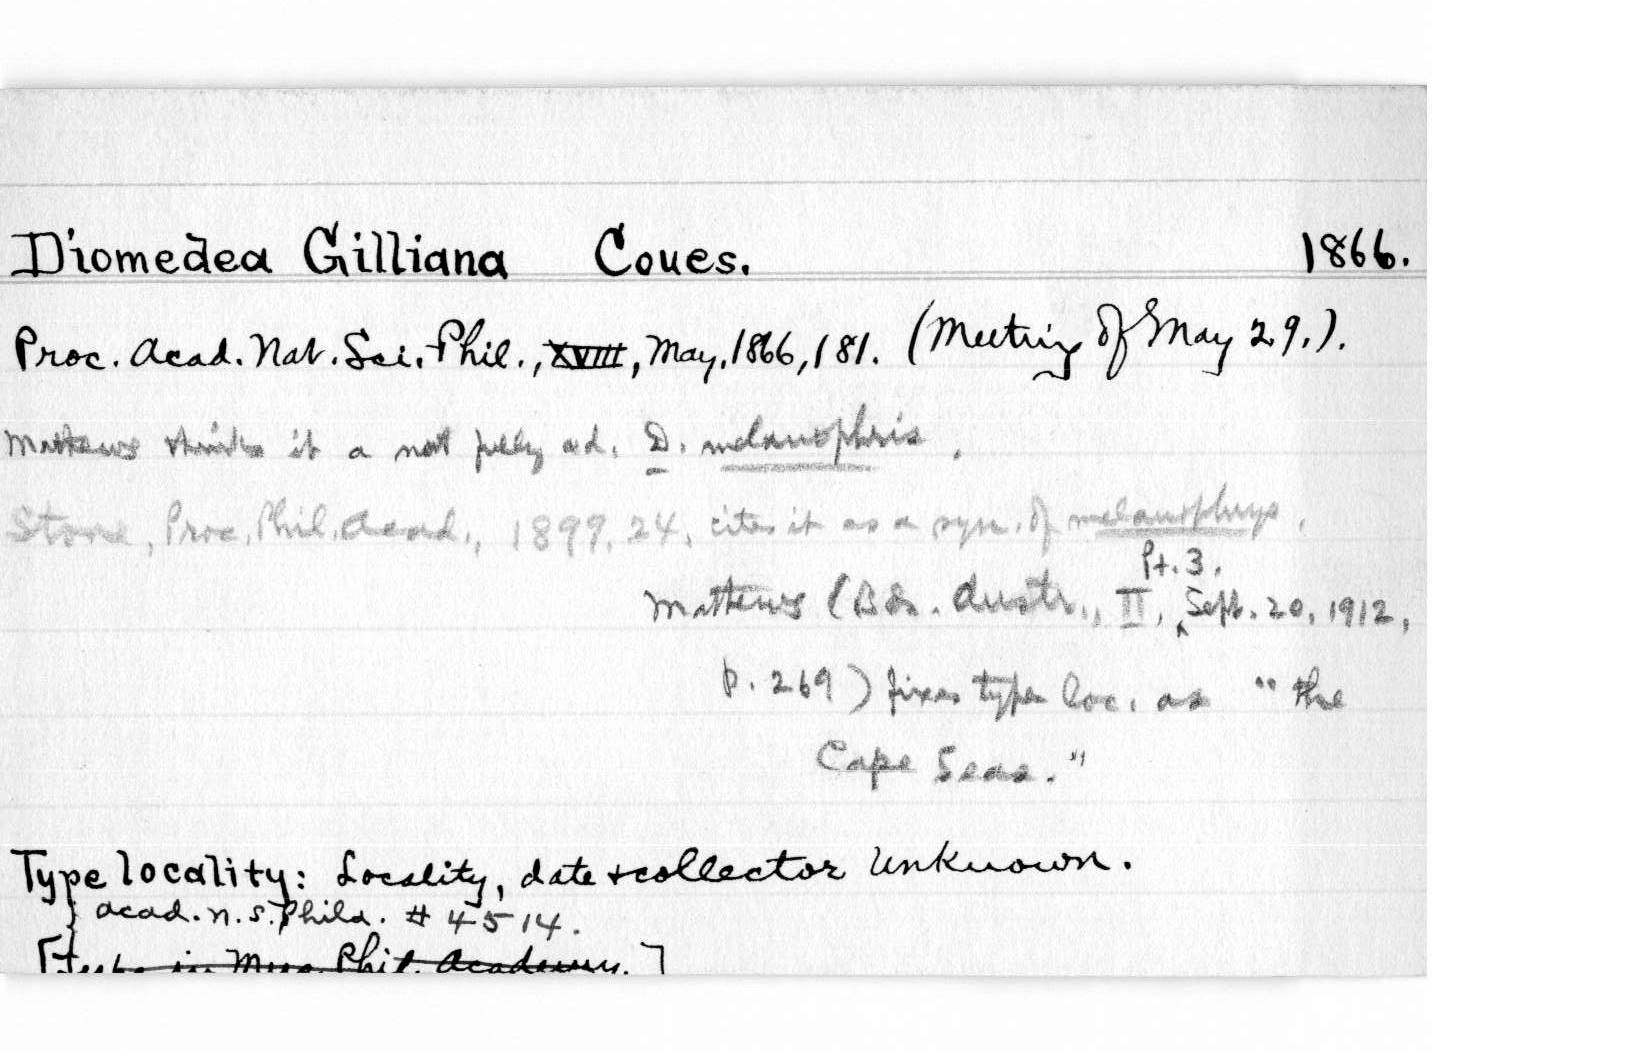 Diomedea Gilliana Coues. 1866.
Proc. Acad. Nat. Sci. Phil., XVIII, May, 1866, 181. (Meeting of May 29.).
Mathews thinks it a not fully ad. D. melanophris.
Stone, Proc. Phil. Acad., 1899, 24, cites it as a syn. of melanophrys.
Pt. 3.
Mathews (Bds. Austr., II, ‸Sept. 20, 1912,
p. 269) fixes type loc. as "the
Cape Seas."
Type locality: Locality, date + collector unknown.
} Acad. N. S. Phila. # 4514.
[Type in Mus. Phil. Academy.]